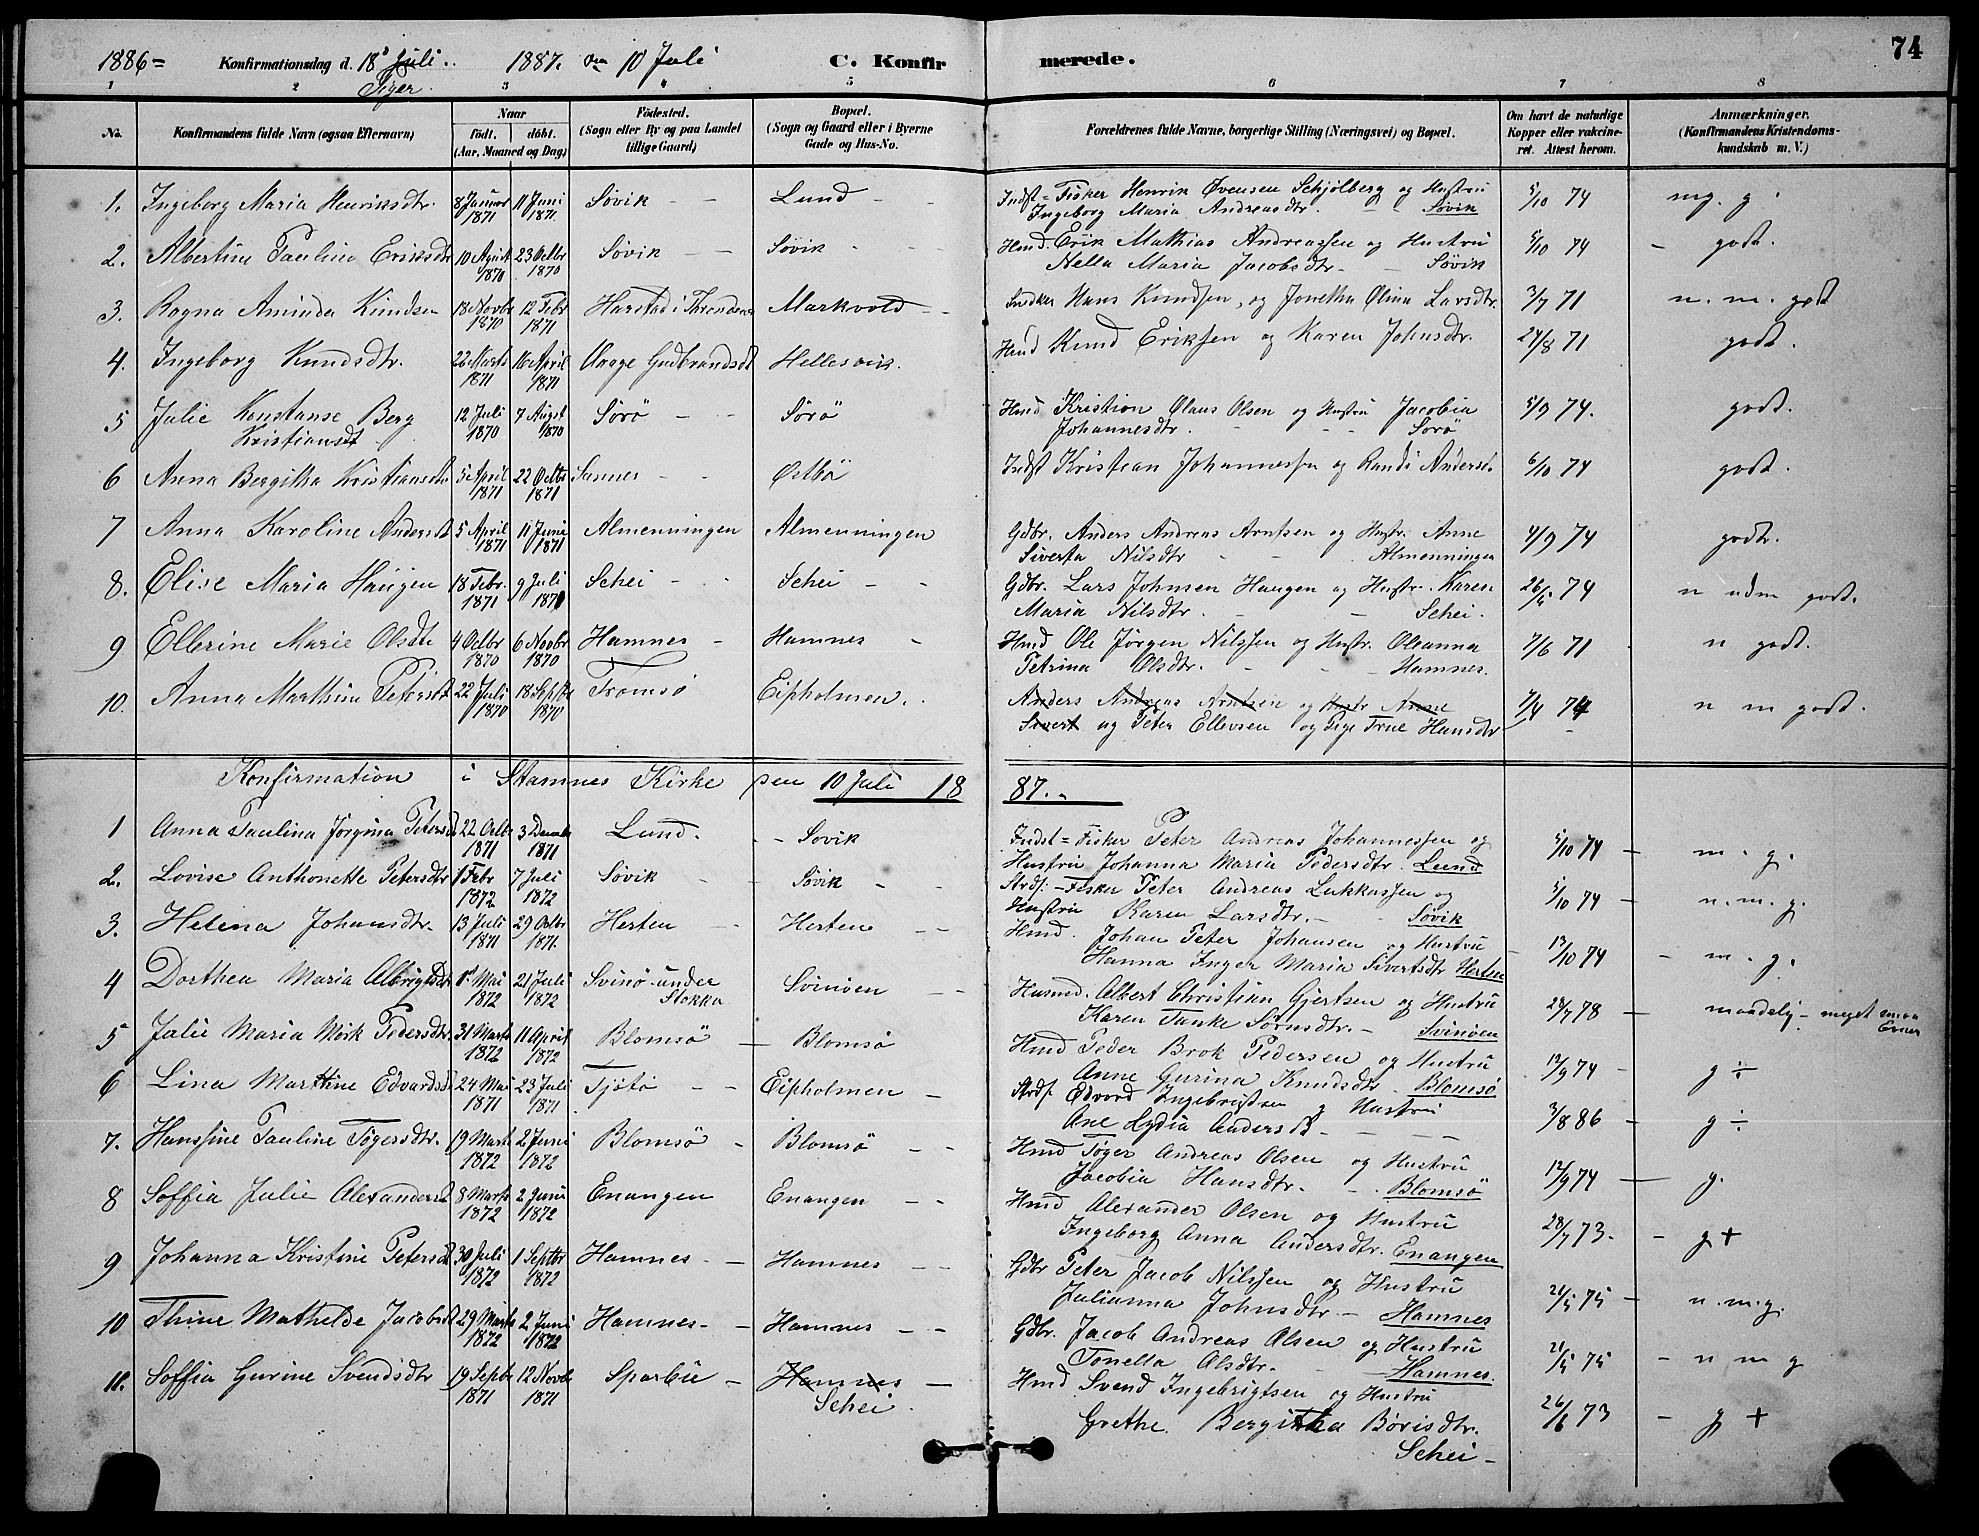 1886 = Konfirmationsdag d. 18 Juli. 1887. den 10 Juli C. Konfirmerede. 74
Piger.
1 2 3 4 5 6 7 8
No. Konfirmandens fulde Navn (ogsaa Efternavn) Naar födt. döbt. (Aar, Maaned og Dag) Födested. (Sogn eller By og paa Landet tillige Gaard) Bopæl. (Sogn og Gaard eller i Byerne Gade og Hus-No. Forældrenes fulde Navne, borgerlige Stilling (Næringsvei) og Bopæl. Om havt de naturlige Kopper eller vakcineret. Attest herom. Anmærkninger. (Konfirmandens Kristendomskundskab m. V.)
1. Ingeborg Maria Henriksdtr. 8 Januar 1871 11 Juni 1871 Søvik Lund Indst = Fisker Henrik Øvensen Schjølberg og Hustru 5/10 74 mg. g
Ingeborg Maria Andreasdtr. Søvik
2. Albertine Pauline Eriksdtr 10 August 1870 23 Octbr 1870 Søvik Søvik Hmd. Erik Mathias Andreassen og Hustru 5/10 74 - godt.
Nella Maria Jacobsdtr. - Søvik
3. Ragna Aminda Knudsen 18 Novbr 1870 12 Febr 1871 Harstad i Throndenæs Markvold Hans Knudsen, og Jonetha Olina Larsdtr. 3/7 71 n. m. godt
4. Ingeborg Knudsdtr. 22 Marts 1871 16 April 1871 Vaage Gudbrandsd Hellesvik. Hmd Knud Eriksen og Karen Johnsdtr. 24/8 71 godt.
5 Julie Konstanse Berg 12 Juli 1870 7 Augst 1870 Sörö Sörö Hmd Kristian Olaus Olsen og Hustru Jacobia 5/9 74. godt.
Kristiansdt Johannesdtr. Sorö
6 Anna Bergitha Kristiansdt 5 April 1871 22 Octbr 1871 Sannes Østbö Indst Kristean Johannessen og Randi Anders. 6/10 74 godt.
7 Anna Karoline Andersdt 5 April 1871 11 Juni 1871 Almenningen Almenningen Gdbr. Anders Andreas Arntsen og Hustr. Anne 4/9 74 godt.
Siverta Nilsdtr Almenningen
8. Elise Maria Haugen 18 Febr. 1871 9 Juli 1871 Schei Schei Gdbr. Lars Johnsen Haugen og Hustr. Karen 26/5 74 n udm godt.
Maria Nilsdtr. - Schei.
9 Ellerine Marie Olsdtr 4 Octbr 1870 6 Novbr 1870 Hamnes Hamnes Hmd Ole Jørgen Nilssen og Hustr. Oleanna 7/6 71 n godt.
Petrina Olsdtr. Hamnes.
10. Anna Marthine Petersdt 22 Juli 1870 18 Septbr 1870 Tromsö Eipholmen. Anders Andreas Arntsen og Hustr Anne 7/4 74 n m godt.
Sivert og Peter Ellevsen og Pige Trine Hansdtr
Konfirmation i Stamnes Kirke den 10 Juli 1887.
1 Anna Paulina Jørgina Petersdt 22 Octbr 1871 3 Decembr 1871 Lund. Søvik Indst = Fisker Peter Andreas Johannessen og 5/10 74 - m. g.
Hustru Johanna Maria Pedersdtr. Lund
2. Lovise Anthonette Petersdtr 1 Febr 1872 7 Juli 1872 Søvik Søvik Strdf. - Fisker Peter Andreas Lukkassen og 5/10 74 - n. m. g.
Hustru Karen Larsdtr. - Søvik
3. Helena Johansdtr. 13 Juli 1871 29 Octbr 1871. Herten Herten Hmd. Johan Peter Johansen og Hustru 13/10 74 - m. g.
Hanna Inger Maria Sivertsdtr Herten
4 Dorthea Maria Albrigtsdtr 1 Mai 1872 21 Juli 1872 Svinö under Stokka Svinöen Husmd. Albert Christian Gjertsen og Hustru 28/7 78 - maadelig - meget smaa Evner
Karen Tanke Sörnsdtr. - Svinöen
5 Julie Maria Mörk Pedersdtr. 31 Marts 1872 11 April 1872 Blomsö Blomsö Hmd Peder Brok Pedersen og Hustru 12/9 74 - g ÷
Anne Gurina Knudsdtr. Blomsö
6 Lina Martine Edvardsdt 24 Mai 1871 23 Juli 1871. Tjötö Eipholmen Strdf. Edvard Ingebrigtsen og Hustru 3/8 86 - g ÷
Ane Lydia Andersdt
7. Hansine Pauline Tögersdtr. 19 Marts 1872 2 Juni 1872 Blomsö Blomsö Hmd Töger Andreas Olsen og Hustru 12/9 74 - g.
Jacobia Hansdtr. Blomsö
8 Soffia Julie Alexandersdt 8 Marts 1872 2 Juni 1872 Enangen Enangen Hmd Alexander Olsen og Hustru 28/7 73. - g +
Ingeborg Anna Andersdtr. Enangen
9 Johanna Kristine Petersdt 30 Juli 1872 1 Septbr 1872 Hamnes Hamnes Gdbr Peter Jacob Nilssen og Hustru 21/5 75 - n. m. g.
Julianna Johnsdtr. - Hamnes
10 Thine Mathilde Jacobsdt 29 Marts 1872 2 Juni 1872 Hamnes Hamnes Gdbr. Jacob Andreas Olsen og Hustru 21/5 75 - n m g
Tonetta Olsdtr. - Hamnes.
11. Soffia Gurine Svendsdtr 19 Septbr 1871 12 Novbr 1871 Sparbu Hamnes Hmd Svend Ingebrigtsen og Hustru 26/6 73 - g +
Schei. Grethe Bergitha Börisdtr.
Schei -